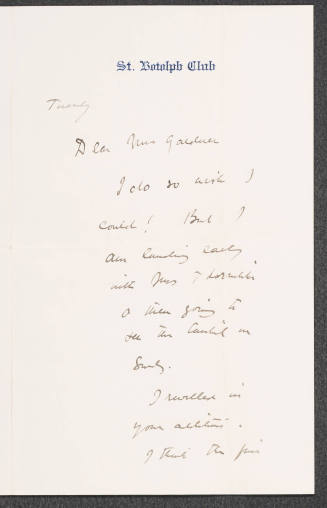 St. Botolph Club
Tuesday
Dear Mrs Gardner
I do so wish I
could! But I
am lunching early
with Mrs
& then going to
see the in
I revelled in
your
I think the